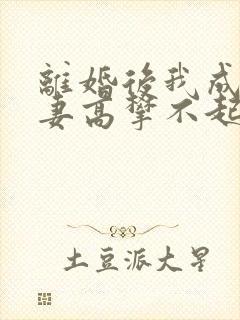 離婚後我成
妻高攀不起
土豆派大星